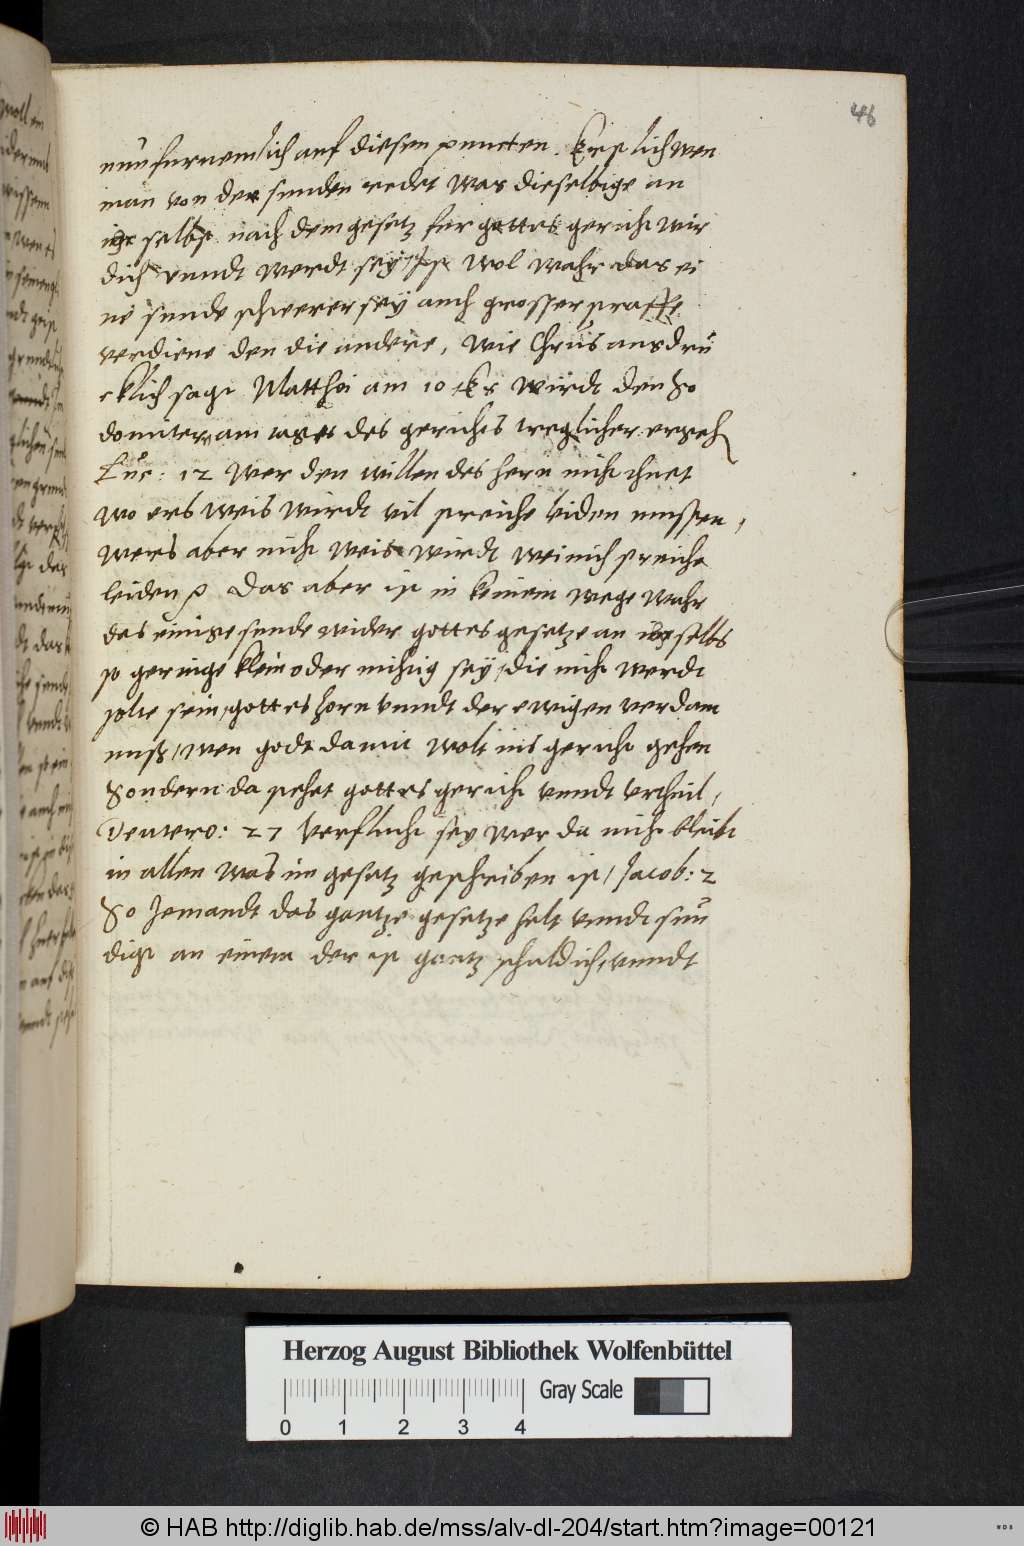 46
nun furnemlich auf diesen puncten. Erstlich wen
man von der sunden redet was dieselbige an
ihr selbst nach dem gesetz fur gottes gericht wir
dich vnndt werdt sey / Ist wol wahr das ei
ne sunde schwerer sey auch grosser straffe
verdiene den die andere, wie Chrūs ausdru
cklich sagt Matthei am 10 Es wirdt den So
domitern am tage des gerichts treglicher ergeh
Luc: 12 Wer den willen des hern nicht thuet
wo ers weis wirdt vil streiche leiden mussen,
wers aber nicht weis wirdt weinich streiche
leiden Das aber ist in keinem wege wahr
das einige sunde wider gottes gesetze an ihr selbs
so geringe klein oder nichtig sey / die nicht werdt
solte sein, gottes zorn vnndt der ewigen verdam
nus, wen godt damit wolt ins gericht gehen
Sondern da stehet gottes gericht vnndt vrtheil,
Deutero: 27 Verflucht sey wer da nicht bleibt
in allen was im gesetz geschriben ist / Jacob: 2
So Jemandt das gantze gesetze helt vnndt sun
digt an einem der ist gantz schuldich, vnndt
Herzog August Bibliothek Wolfenbüttel
Gray Scale
0 1 2 3 4
© HAB http://diglib.hab.de/mss/alv-dl-204/start.htm?image=00121